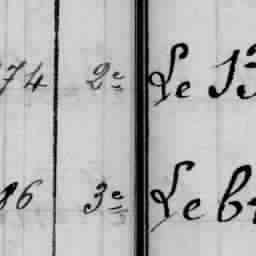 74 2e Le 13
86 3e Le br